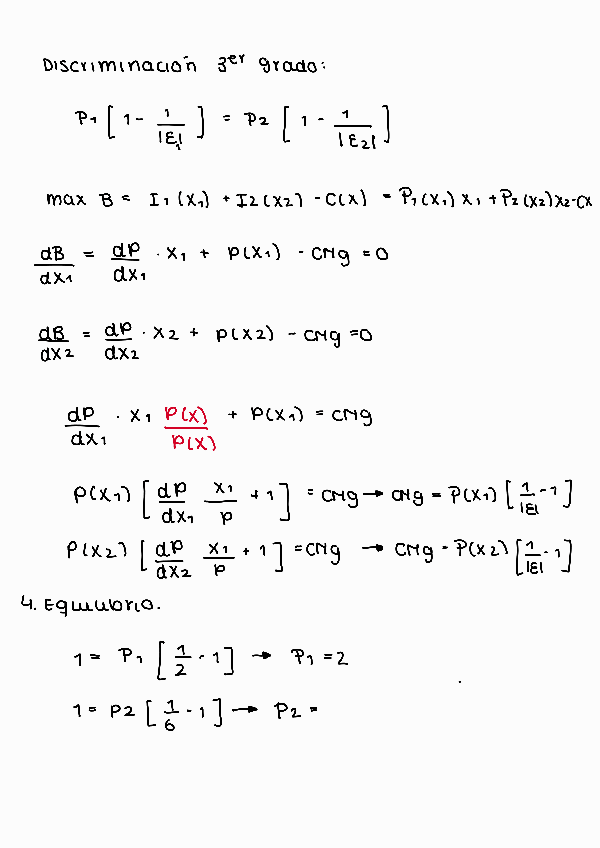 Discriminación 3er grado:
P1 [ 1 - 1/|ε1| ] = P2 [ 1 - 1/|ε2| ]
max B = I1(X1) + I2(X2) - C(X) = P1(X1) X1 + P2(X2)X2-CX
dB/dX1 = dP/dX1 · X1 + P(X1) - CMg = 0
dB/dX2 = dP/dX2 · X2 + P(X2) - CMg = 0
dP/dX1 · X1 P(X)/P(X) + P(X1) = CMg
P(X1) [ dP/dX1 X1/P + 1 ] = CMg → CMg = P(X1) [ 1/|ε| - 1 ]
P(X2) [ dP/dX2 X1/P + 1 ] = CMg → CMg = P(X2) [ 1/|ε| - 1 ]
4. Equilibrio.
1 = P1 [ 1/2 - 1 ] → P1 = 2
1 = P2 [ 1/6 - 1 ] → P2 =